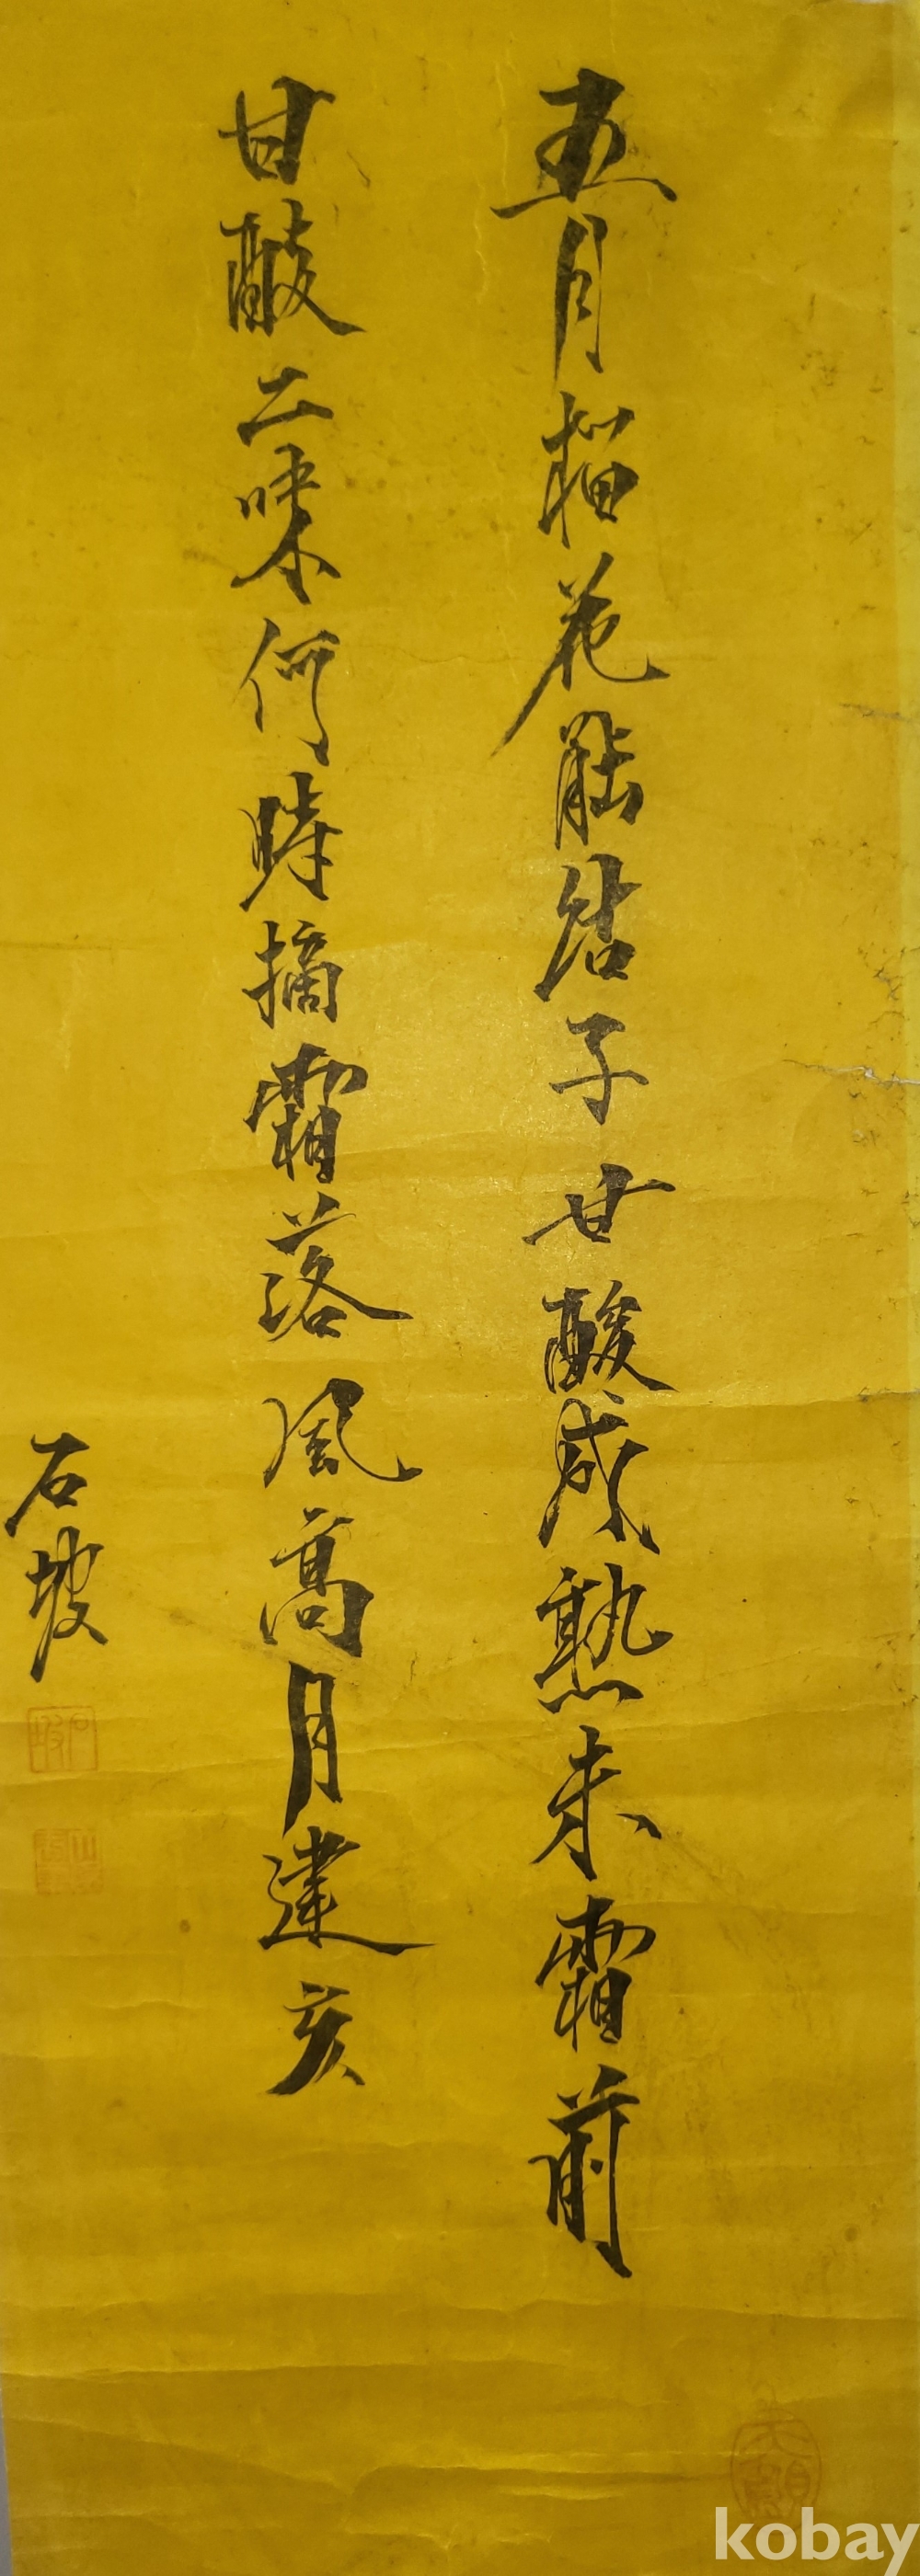 五月榴花能結子甘酸成熟未霜前
甘酸二味何時摘霜落風高月建亥
石坡
石坡
kobay